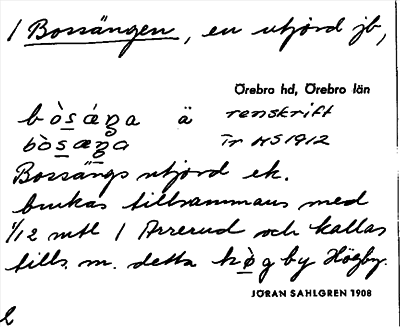 1 Bossängen, en utjord jb,
Örebro hd, Örebro län
bò̱sǽŋa ä renskrift
bòsæŋa Tr HS 1912
Bossängs utjord ek.
brukas tillsammans med
1/12 mtl 1 Arrerud och kallas
tills. m. detta hø̀gby Högby.
JÖRAN SAHLGREN 1908